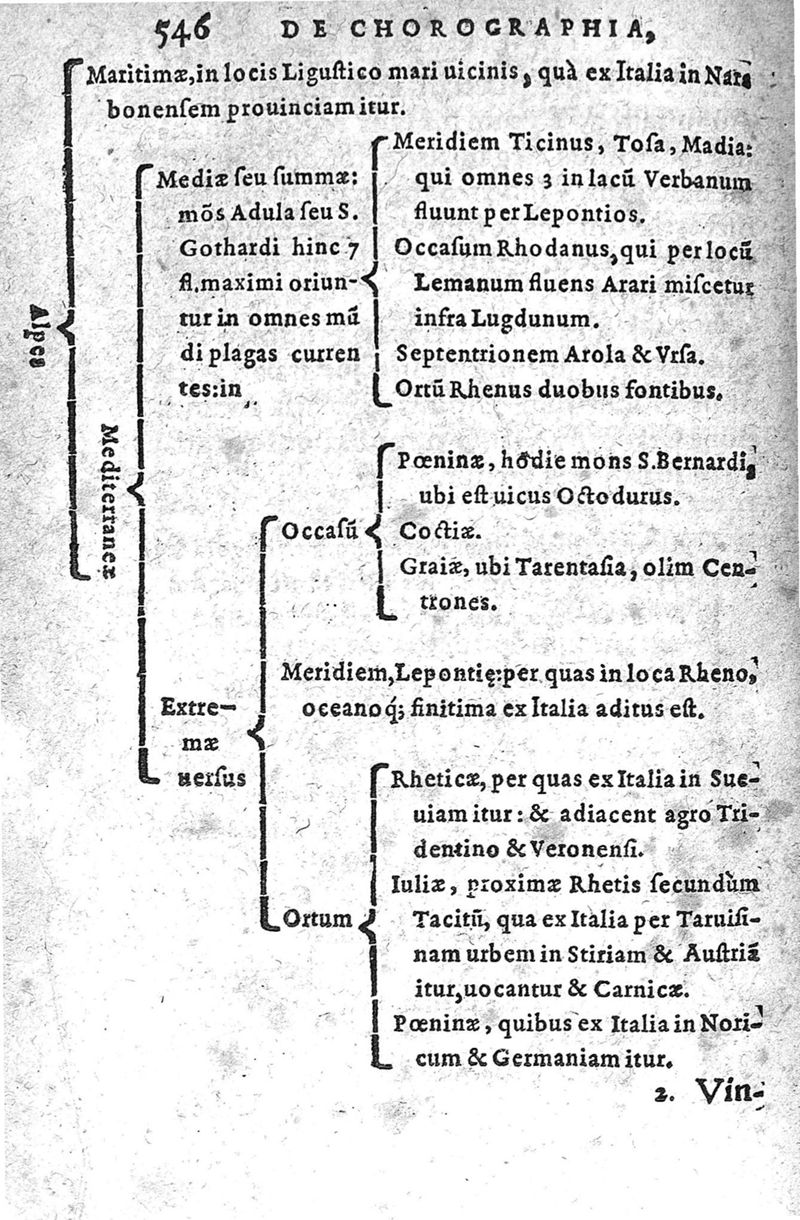 546 DE CHOROGRAPHIA,
Alpes
Maritimæ, in locis Liguſtico mari uicinis, quà ex Italia in Nar⸗
bonenſem prouinciam itur.
Mediterraneæ
Mediæ ſeu ſummæ:
mõs Adula ſeu S.
Gothardi hinc 7
fl. maximi oriun-
tur in omnes mũ
di plagas curren
tes: in
Meridiem Ticinus, Toſa, Madia:
qui omnes 3 in lacũ Verbanum
fluunt per Lepontios.
Occaſum Rhodanus, qui per locũ
Lemanum fluens Arari miſcetur
infra Lugdunum.
Septentrionem Arola & Vrſa.
Ortũ Rhenus duobus fontibus.
Extre-
mæ
uerſus
Occaſũ
Pœninæ, hodie mons S. Bernardi,
ubi eſt uicus Octodurus.
Coctiæ.
Graiæ, ubi Tarentaſia, olim Cen-
trones.
Meridiem, Lepontię: per quas in loca Rheno,
oceanoq́; finitima ex Italia aditus eſt.
Ortum
Rheticæ, per quas ex Italia in Sue-
uiam itur: & adiacent agro Tri-
dentino & Veronenſi.
Iuliæ, proximæ Rhetis ſecundùm
Tacitũ, qua ex Italia per Taruiſi-
nam urbem in Stiriam & Auſtriã
itur, uocantur & Carnicæ.
Pœninæ, quibus ex Italia in Nori-
cum & Germaniam itur.
2. Vin-